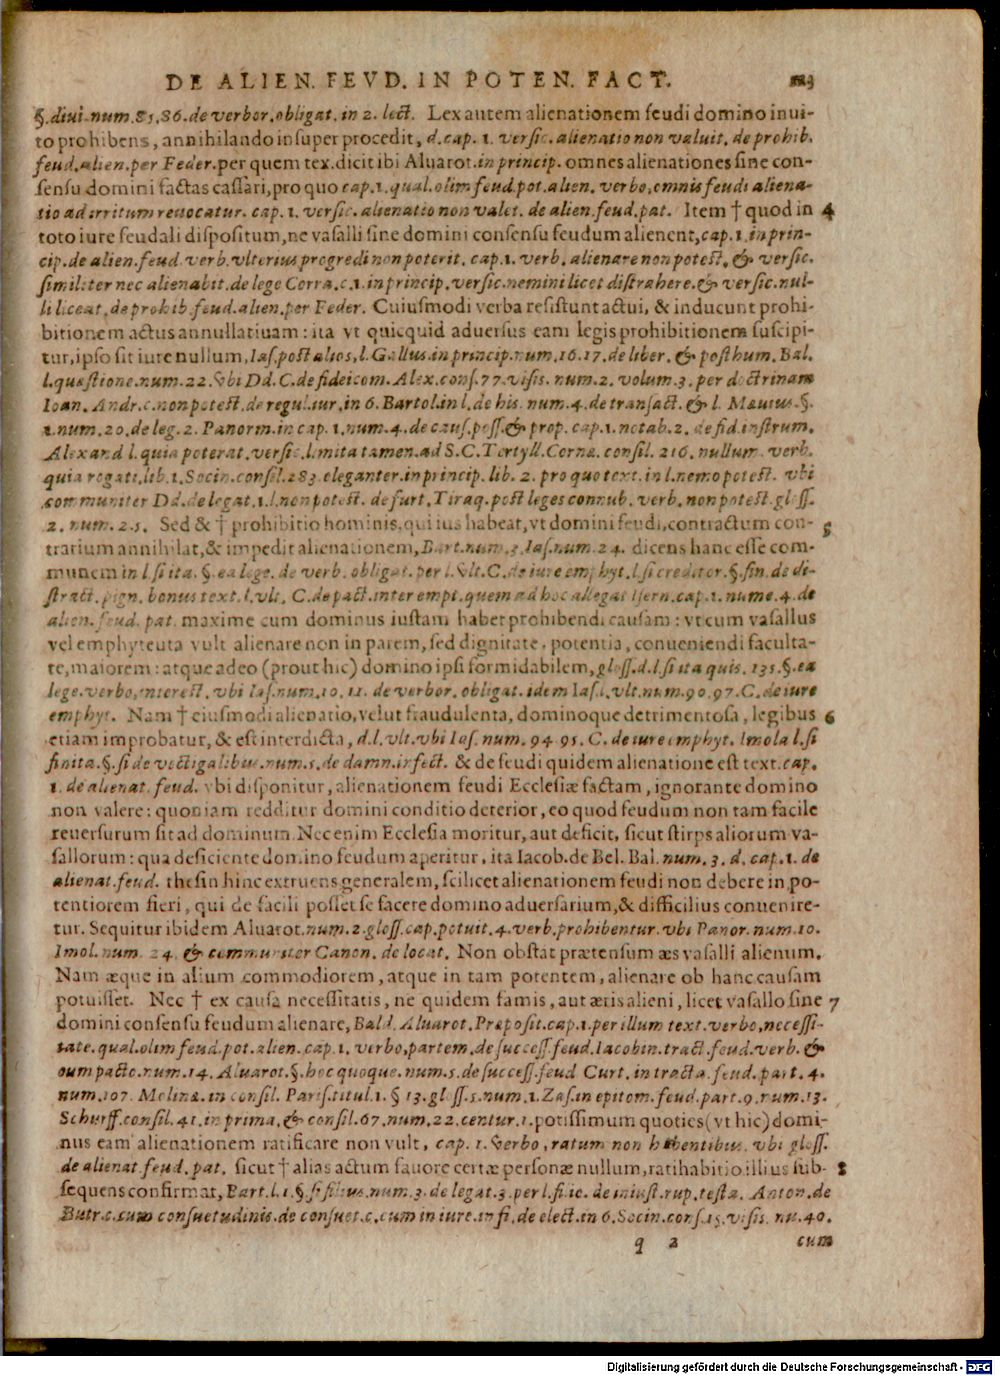 DE ALIEN. FEVD. IN POTEN. FACT. 123
§. diui. num. 85, 86. de verbor. obligat. in 2. lect. Lex autem alienationem feudi domino inui-
to prohibens, annihilando insuper procedit, d. cap. 1. versic. alienatio non valuit, de prohib.
feud. alien. per Feder. per quem tex. dicit ibi Aluarot. in princip. omnes alienationes sine con-
sensu domini factas cassari, pro quo cap. 1. qual. olim feud. pot. alien. verbo, omnis feudi aliena-
tio ad irritum reuocatur. cap. 1. versic. alienatio non valet. de alien. feud. pat. Item † quod in 4
toto iure feudali dispositum, ne vasalli sine domini consensu feudum alienent, cap. 1. in prin-
cip. de alien. feud. verb. vlterius progredi non poterit. cap. 1. verb. alienare non potest, & versic.
similiter nec alienabit. de lege Corra. c. 1. in princip. versic. nemini licet distrahere. & versic. nul-
li liceat, de prohib. feud. alien. per Feder. Cuiusmodi verba resistunt actui, & inducunt prohi-
bitionem actus annullatiuam: ita vt quicquid aduersus eam legis prohibitionem suscipi-
tur, ipso sit iure nullum, Ias. post alios, l. Gallus. in princip. num. 16. 17. de liber. & posthum. Bal.
l. quæstione. num. 22. vbi Dd. C. de fideicom. Alex. cons. 77. visis. num. 2. volum. 3. per doctrinam
Ioan. Andr. c. non potest. de regul. iur. in 6. Bartol. in l. de his. num. 4. de transact. & l. Meuius. §.
1. num. 20. de leg. 2. Panorm. in cap. 1. num. 4. de caus. poss. & prop. cap. 1. notab. 2. de fid. instrum.
Alexand. l. quia poterat. versic. limita tamen. ad S. C. Tertyll. Corne. consil. 216. nullum. verb.
quia rogati, lib. 1. Socin. consil. 283. eleganter. in princip. lib. 2. pro quo text. in l. nemo potest. vbi
communiter Dd. de legat. 1. l. non potest. de furt. Tiraq. post leges connub. verb. non potest. gloss.
2. num. 25. Sed & † prohibitio hominis, qui ius habeat, vt domini feudi, contractum con- 5
trarium annihilat, & impedit alienationem, Bart. num. 3. Ias. num. 24. dicens hanc esse com-
munem in l. si ita. §. ea lege. de verb. obligat. per l. vlt. C. de iure emphyt. l. si creditor. §. fin. de di-
stract. pign. bonus text. l. vlt. C. de pact. inter empt. quem ad hoc allegat Isern. cap. 1. nume. 4. de
alien. feud. pat. maxime cum dominus iustam habet prohibendi causam: vt cum vasallus
vel emphyteuta vult alienare non in parem, sed dignitate, potentia, conueniendi faculta-
te, maiorem: atque adeo (prout hic) domino ipsi formidabilem, gloss. d. l. si ita quis. 135. §. ea
lege. verbo, interest. vbi Ias. num. 10. 11. de verbor. obligat. idem Ias. l. vlt. num. 90. 97. C. de iure
emphyt. Nam † eiusmodi alienatio, velut fraudulenta, dominoque detrimentosa, legibus 6
etiam improbatur, & est interdicta, d. l. vlt. vbi Ias. num. 94. 95. C. de iure emphyt. Imola l. si
finita. §. si de vectigalibus. num. 5. de damn. infect. & de feudi quidem alienatione est text. cap.
1. de alienat. feud. vbi disponitur, alienationem feudi Ecclesiæ factam, ignorante domino
non valere: quoniam redditur domini conditio deterior, eo quod feudum non tam facile
reuersurum sit ad dominum. Nec enim Ecclesia moritur, aut deficit, sicut stirps aliorum va-
sallorum: qua deficiente domino feudum aperitur, ita Iacob. de Bel. Bal. num. 3. d. cap. 1. de
alienat. feud. thesin hinc extruens generalem, scilicet alienationem feudi non debere in po-
tentiorem fieri, qui de facili posset se facere domino aduersarium, & difficilius conuenire-
tur. Sequitur ibidem Aluarot. num. 2. gloss. cap. potuit. 4. verb. prohibentur. vbi Panor. num. 10.
Imol. num. 24. & communiter Canon. de locat. Non obstat prætensum æs vasalli alienum.
Nam æque in alium commodiorem, atque in tam potentem, alienare ob hanc causam
potuisset. Nec † ex causa necessitatis, ne quidem famis, aut æris alieni, licet vasallo sine 7
domini consensu feudum alienare, Bald. Aluarot. Præposit. cap. 1. per illum text. verbo, necessi-
tate. qual. olim feud. pot. alien. cap. 1. verbo, partem. de success. feud. Iacobin. tract. feud. verb. &
cum pacto. num. 14. Aluarot. §. hoc quoque. num. 5. de success. feud. Curt. in tracta. feud. part. 4.
num. 107. Molinæ. in consil. Paris. titul. 1. § 13. gloss. 5. num. 1. Zas. in epitom. feud. part. 9. num. 13.
Schurff. consil. 41. in prima, & consil. 67. num. 22. centur. 1. potissimum quoties (vt hic) domi-
nus eam alienationem ratificare non vult, cap. 1. verbo, ratum non habentibus. vbi gloss.
de alienat. feud. pat. sicut † alias actum fauore certæ personæ nullum, ratihabitio illius sub- 8
sequens confirmat, Bart. l. 1. §. si filius. num. 3. de legat. 3. per l. filie. de iniust. rup. testa. Anton. de
Butr. c. cum consuetudinis. de consuet. c. cum in iure. in fi. de elect. in 6. Socin. cons. 15. visis. nu. 40.
q 2 cum
Digitalisierung gefördert durch die Deutsche Forschungsgemeinschaft - DFG